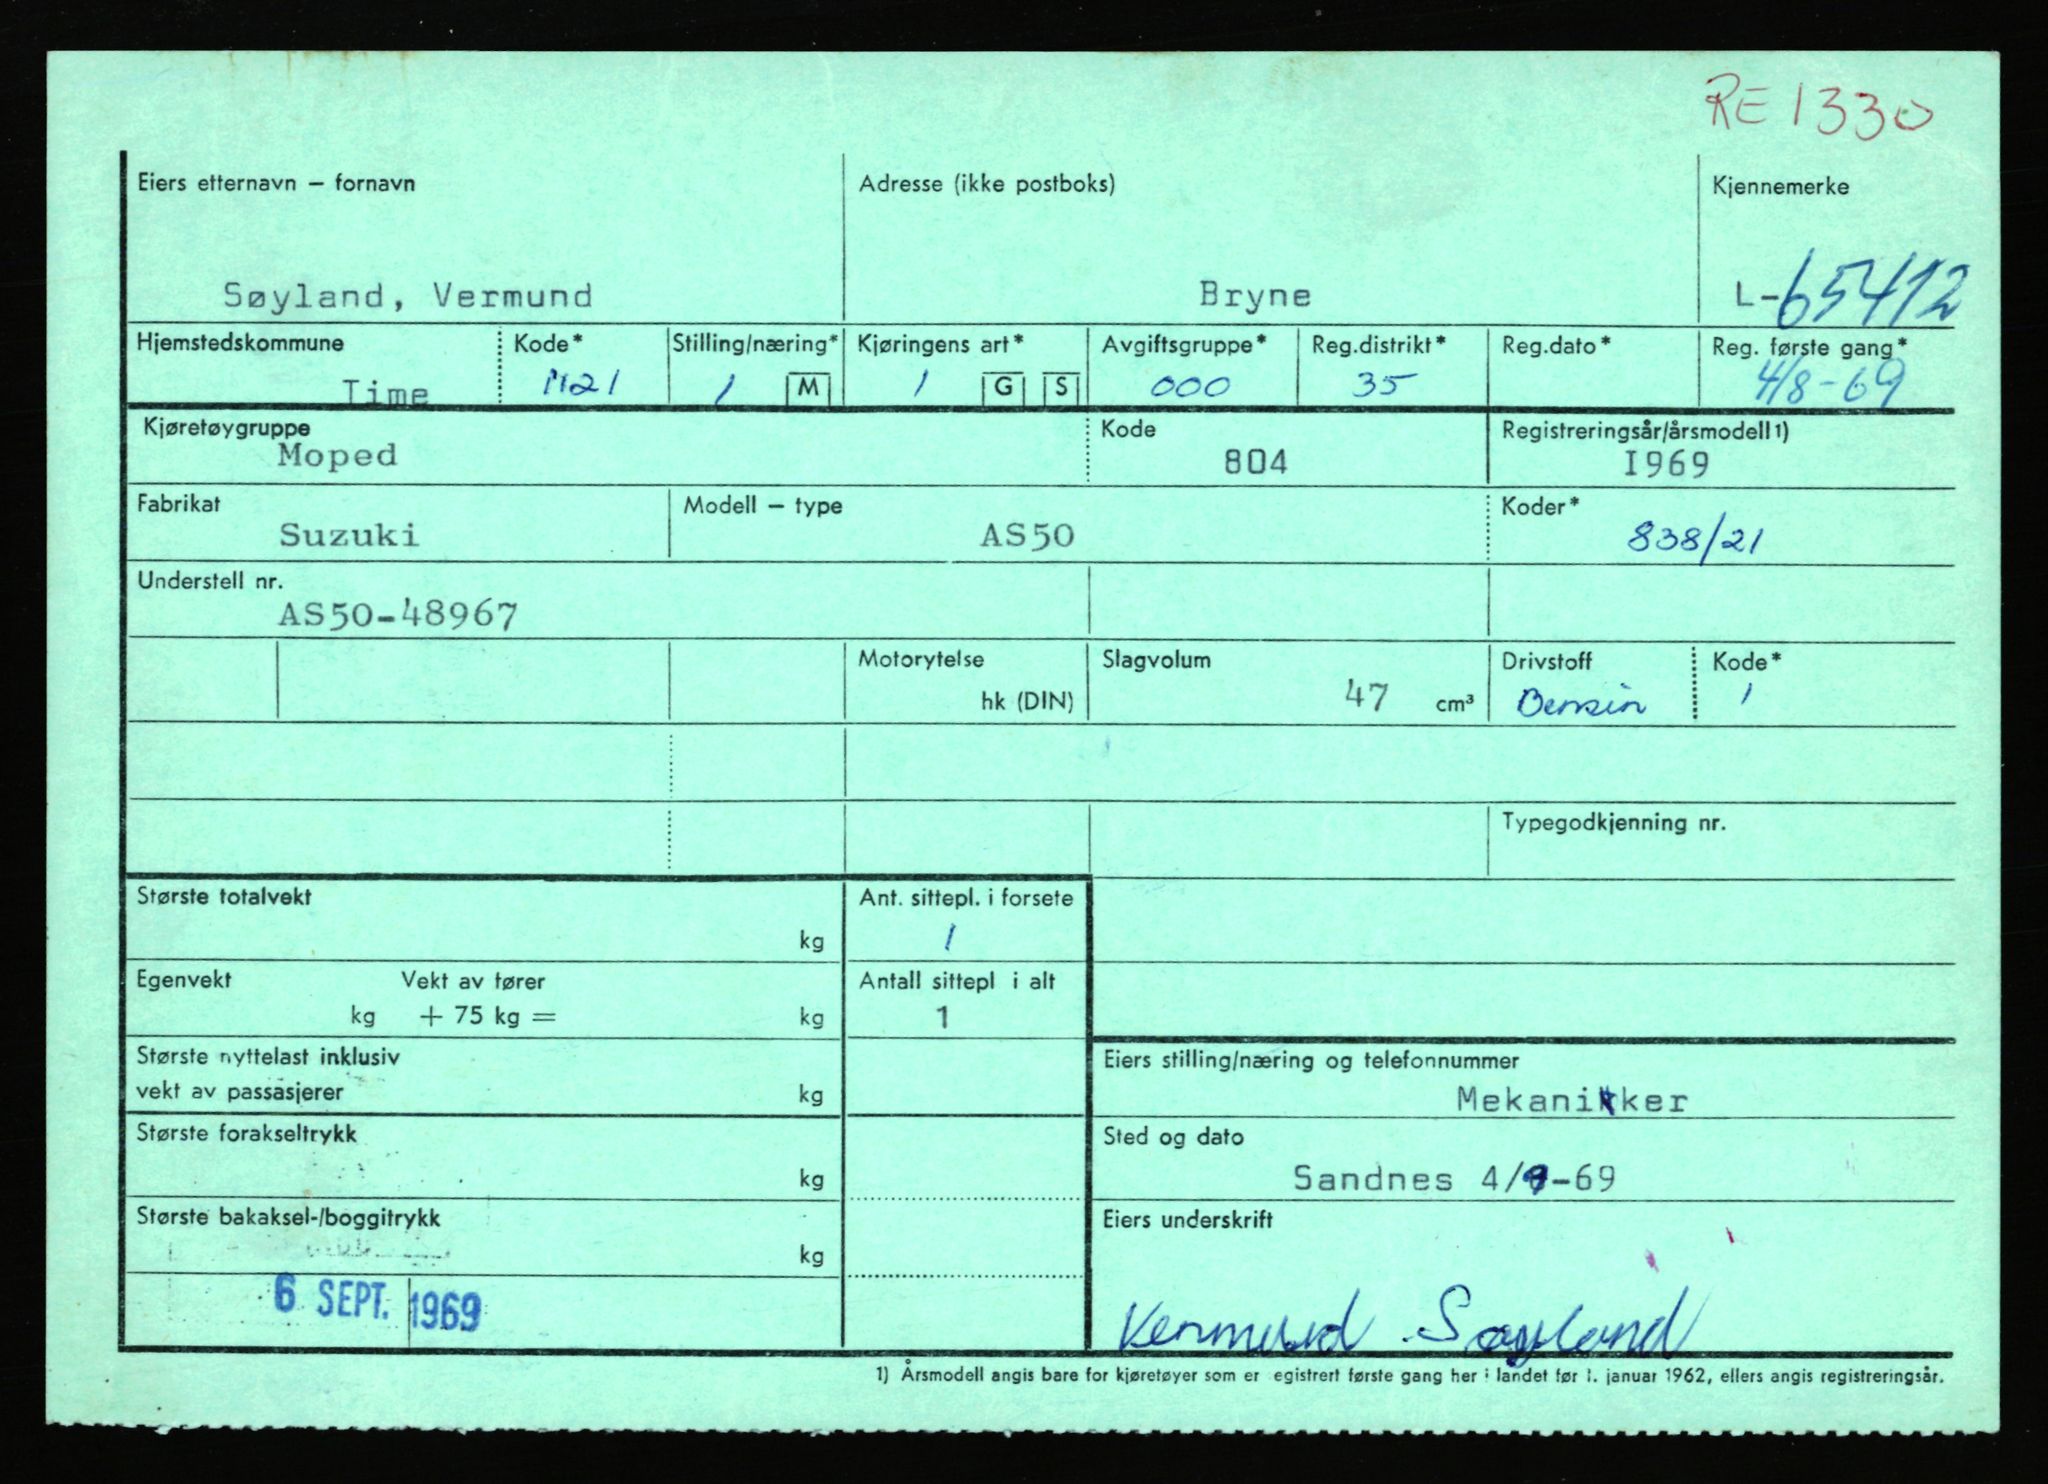 RE 1330
Eiers etternavn – fornavn
Adresse (ikke postboks)
Kjennemerke
Søyland, Vermund
Bryne
L-65412
Hjemstedskommune
Kode*
Stilling/næring*
Kjøringens art*
Avgiftsgruppe*
Reg.distrikt*
Reg.dato*
Reg. første gang*
Time
1121
1
M
1
G
S
000
35
4/8-69
Kjøretøygruppe
Kode
Registreringsår/årsmodell 1)
Moped
804
I969
Fabrikat
Modell – type
Koder*
Suzuki
AS50
838/21
Understell nr.
AS50-48967
Motorytelse
Slagvolum
Drivstoff
Kode*
hk (DIN)
47 cm³
Bensin
1
Typegodkjenning nr.
Største totalvekt
kg
Ant. sittepl. i forsete
1
Egenvekt
Vekt av fører
Antall sittepl i alt
kg + 75 kg = kg
1
Største nyttelast inklusiv
vekt av passasjerer
kg
Eiers stilling/næring og telefonnummer
Mekanikker
Største forakseltrykk
kg
Sted og dato
Sandnes 4/8-69
Største bakaksel-/boggitrykk
kg
Eiers underskrift
6 SEPT. 1969
Vermund Søyland
1) Årsmodell angis bare for kjøretøyer som er egistrert første gang her i landet før 1. januar 1962, ellers angis registreringsår.